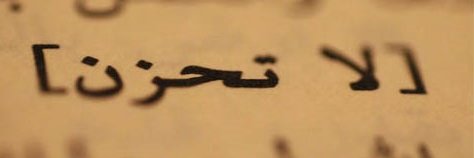 [لا تحزن]